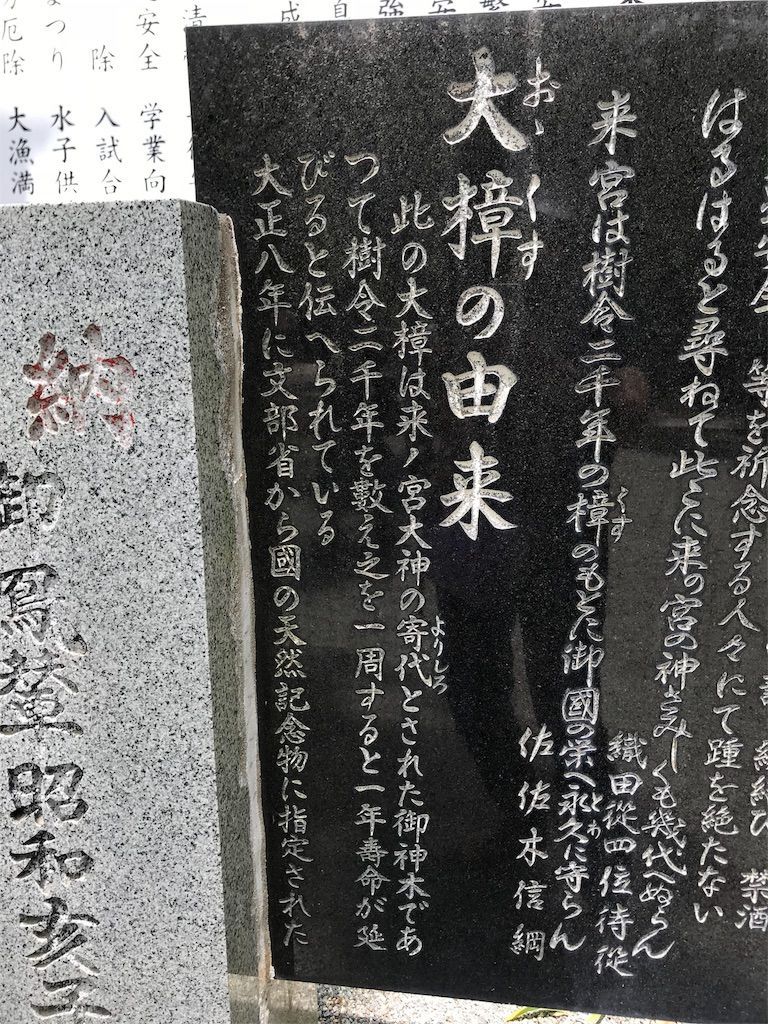 等を祈念する人々にて踵を絶たない
禁酒
はるはると尋ねて此とに来の宮の神さみしくも幾代へぬらん
織田従四位待從
来宮は樹令二千年の樟のもとに御國の栄へ永久に守らん
くす
とわ
佐佐木信綱
大樟の由来
おゝくす
此の大樟は来ノ宮大神の寄代とされた御神木であ
よりしろ
つて樹令二千年を數え之を一周すると一年壽命が延
びると伝へられている
大正八年に文部省から國の天然記念物に指定された
学業向
入試合
水子供
大漁満
安全
除
まつり
厄除
納
御鳳輦
昭和亥子